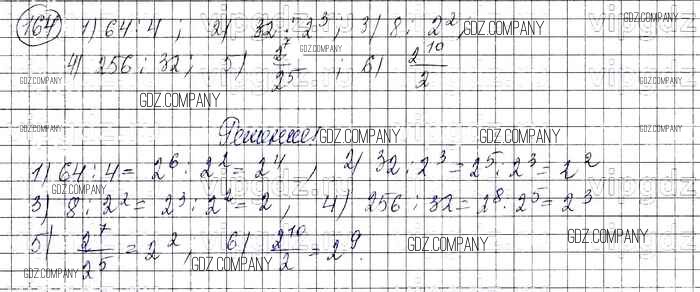 164 1) 64 : 4 ; 2) 32 : 2³ ; 3) 8 : 2² ; GDZ.COMPANY
4) 256 : 32 ; 5) 2⁷/2⁵ ; 6) 2¹⁰/2
GDZ.COMPANY GDZ.COMPANY GDZ.COMPANY
GDZ.COMPANY
Решение: GDZ.COMPANY GDZ.COMPANY
1) 64 : 4 = 2⁶ : 2² = 2⁴ , 2) 32 : 2³ = 2⁵ : 2³ = 2²
GDZ.COMPANY GDZ.COMPANY
3) 8 : 2² = 2³ : 2² = 2 , 4) 256 : 32 = 2⁸ : 2⁵ = 2³
5) 2⁷/2⁵ = 2² , 6) 2¹⁰/2 = 2⁹.
GDZ.COMPANY GDZ.COMPANY GDZ.COMPANY GDZ.COMPANY
vipgdz